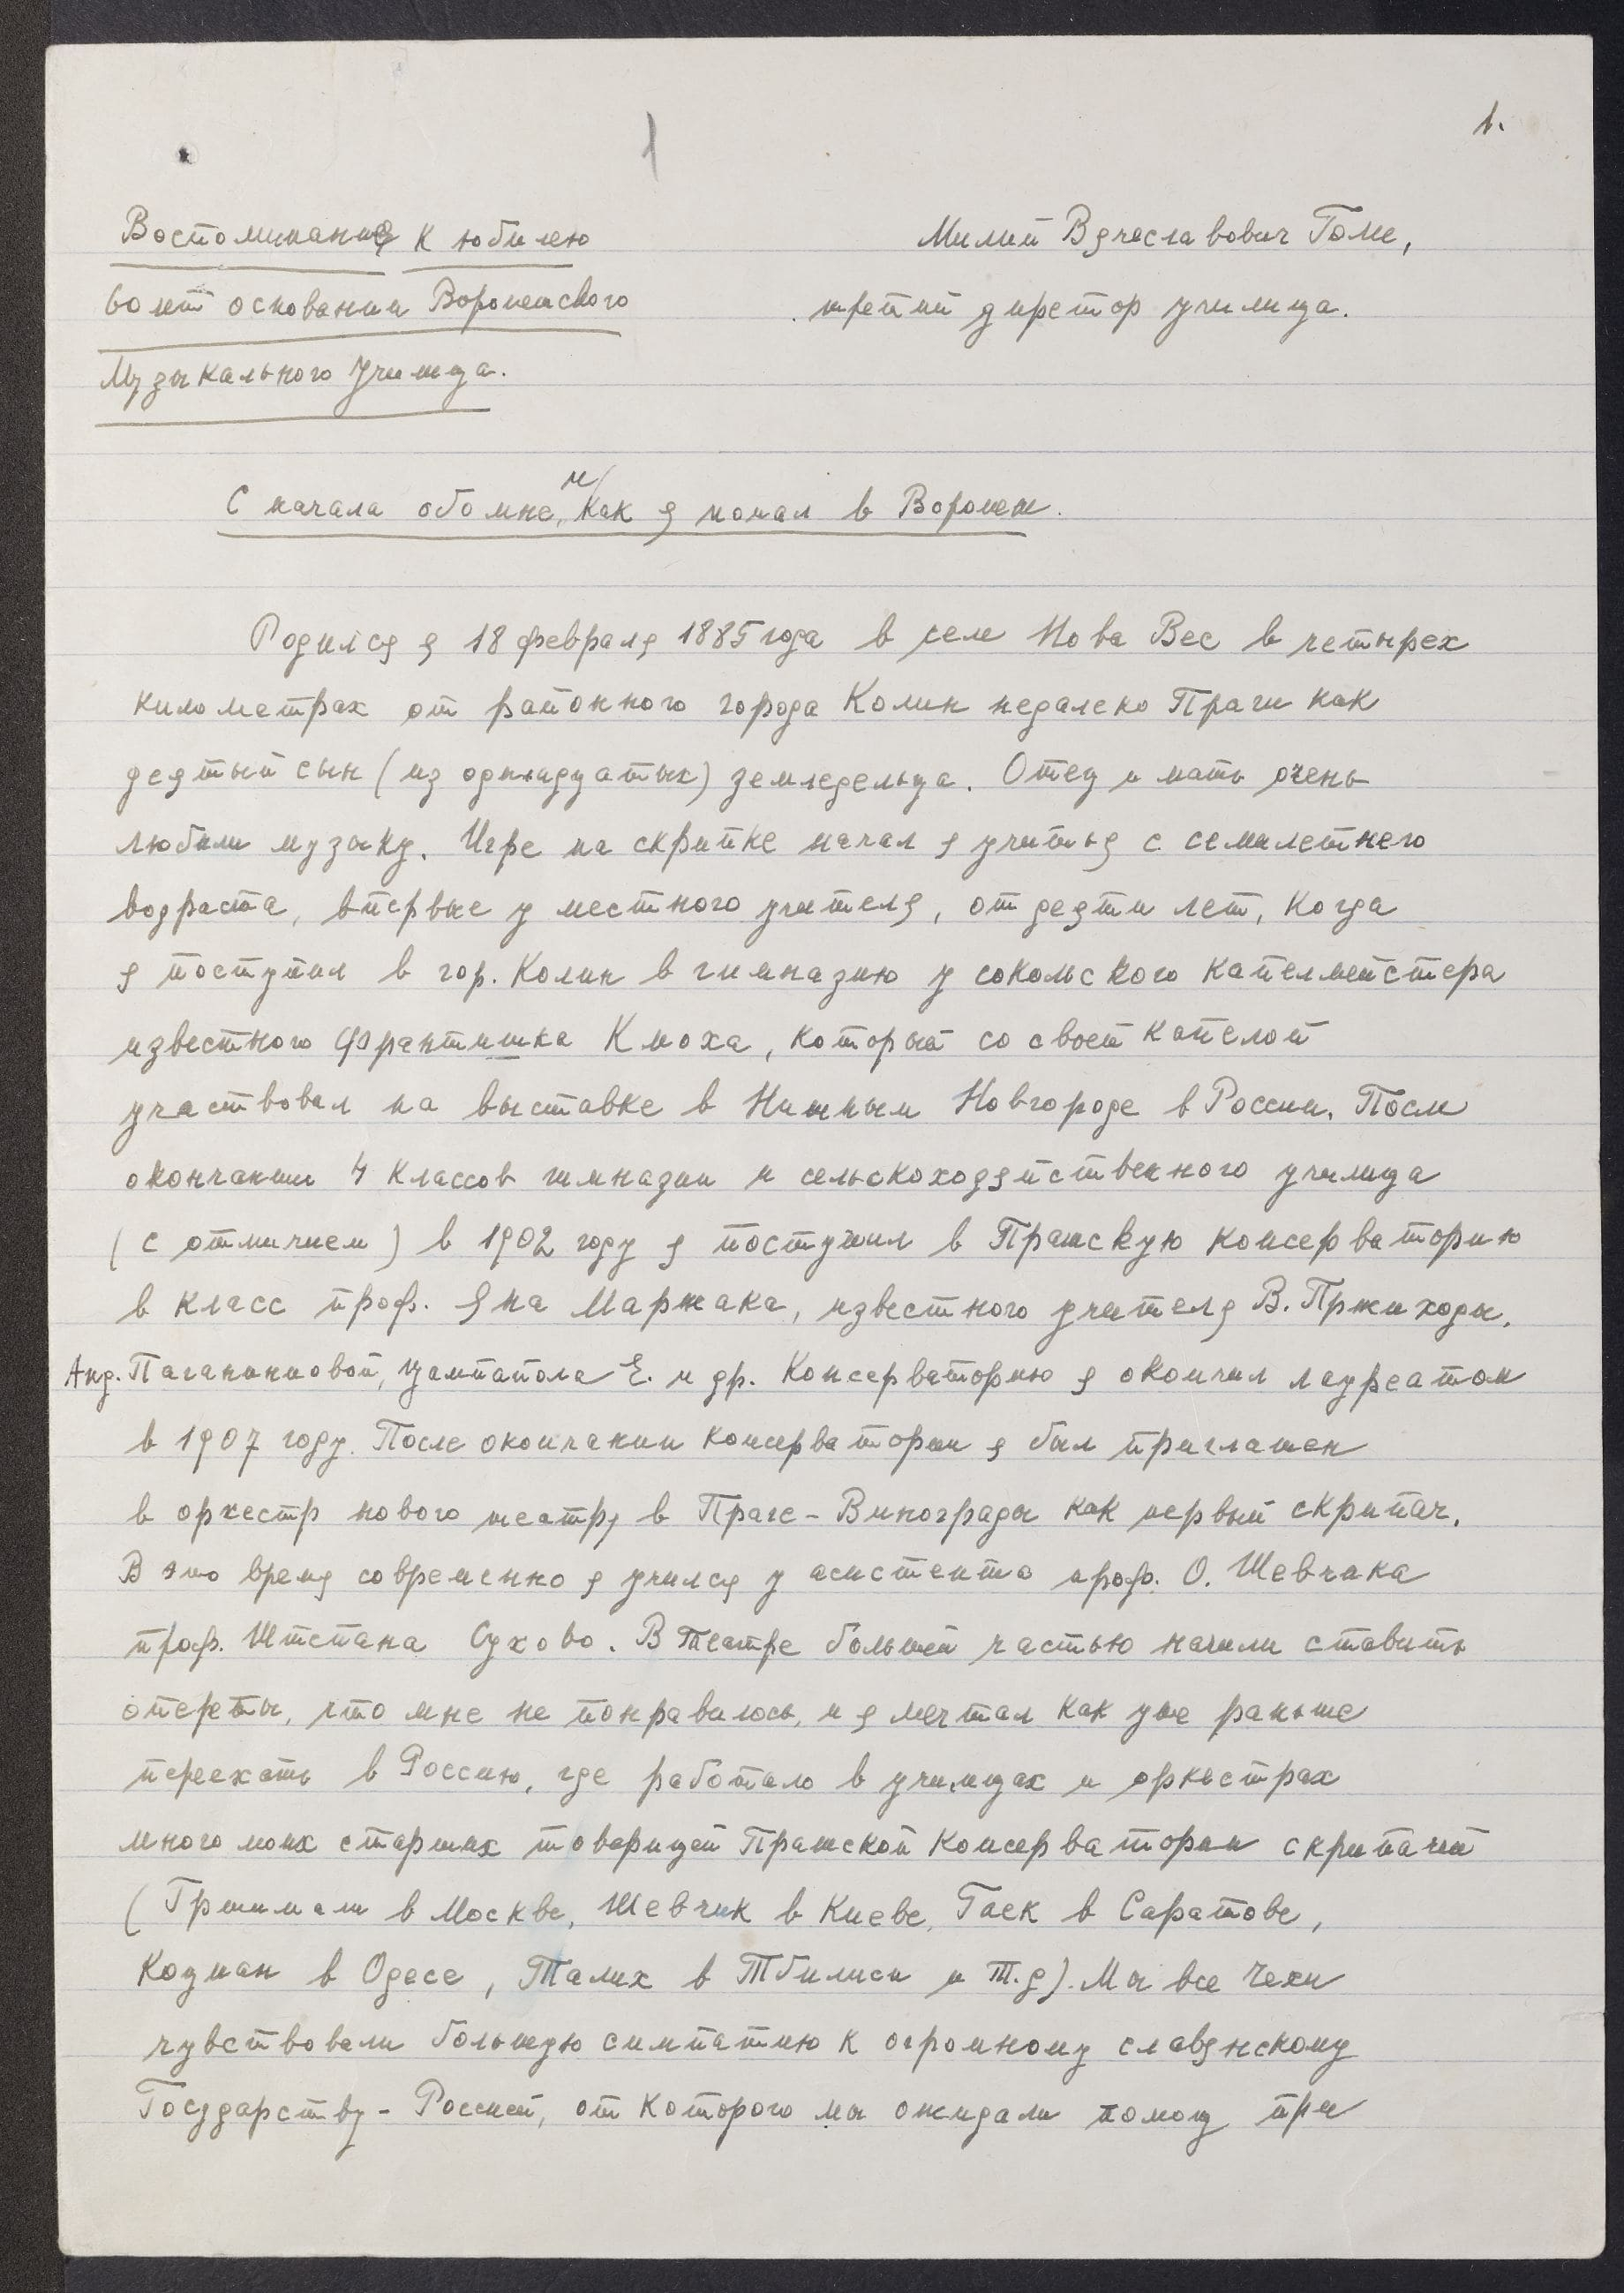 1.
1
Воспоминания к юбилею
60 лет основании Воронежского
Музыкального Училища.
Милий Вячеславович Голе,
третий директор училища.
С начала обо мне, и как я попал в Воронеж.
Родился я 18 февраля 1885 года в селе Нова Вес в четырех
километрах от районного города Колин недалеко Праги как
десятый сын (из одинадцатых) земледельца. Отец и мать очень
любили музыку. Игре на скрипке начал я учиться с семилетнего
возраста, впервые у местного учителя, от десяти лет, когда
я поступил в гор. Колин в гимназию у сокольского капелмейстера
известного Франтишка Кмоха, который со своей капелой
участвовал на выставке в Нижным Новгороде в России. После
окончании 4 классов гимназии и сельскохозяйственного училища
(с отличием) в 1902 году я поступил в Пражскую консерваторию
в класс проф. Яна Маржака, известного учителя В. Пржиходы,
Анд. Паганиновой, Цампапола Е. и др. Консерваторию я окончил лауреатом
в 1907 году. После окончании консерватории я был приглашен
в оркестр нового театру в Праге - Винограды как первый скрипач.
В это время современно я учился у асистента проф. О. Шевчика
проф. Штепана Сухово. В театре большей частью начали ставить
опереты, что мне не понравилось, и я мечтал как уже раньше
переехать в Россию, где работало в училищах и оркестрах
много моих старших товарищей Пражской консерватории скрипачей
(Гржимали в Москве, Шевчик в Киеве, Гаек в Саратове,
Коциан в Одесе, Талих в Тбилиси и т.д). Мы все Чехи
чувствовали большую симпатию к огромному славянскому
Государству - Россией, от которого мы ожидали помощ при